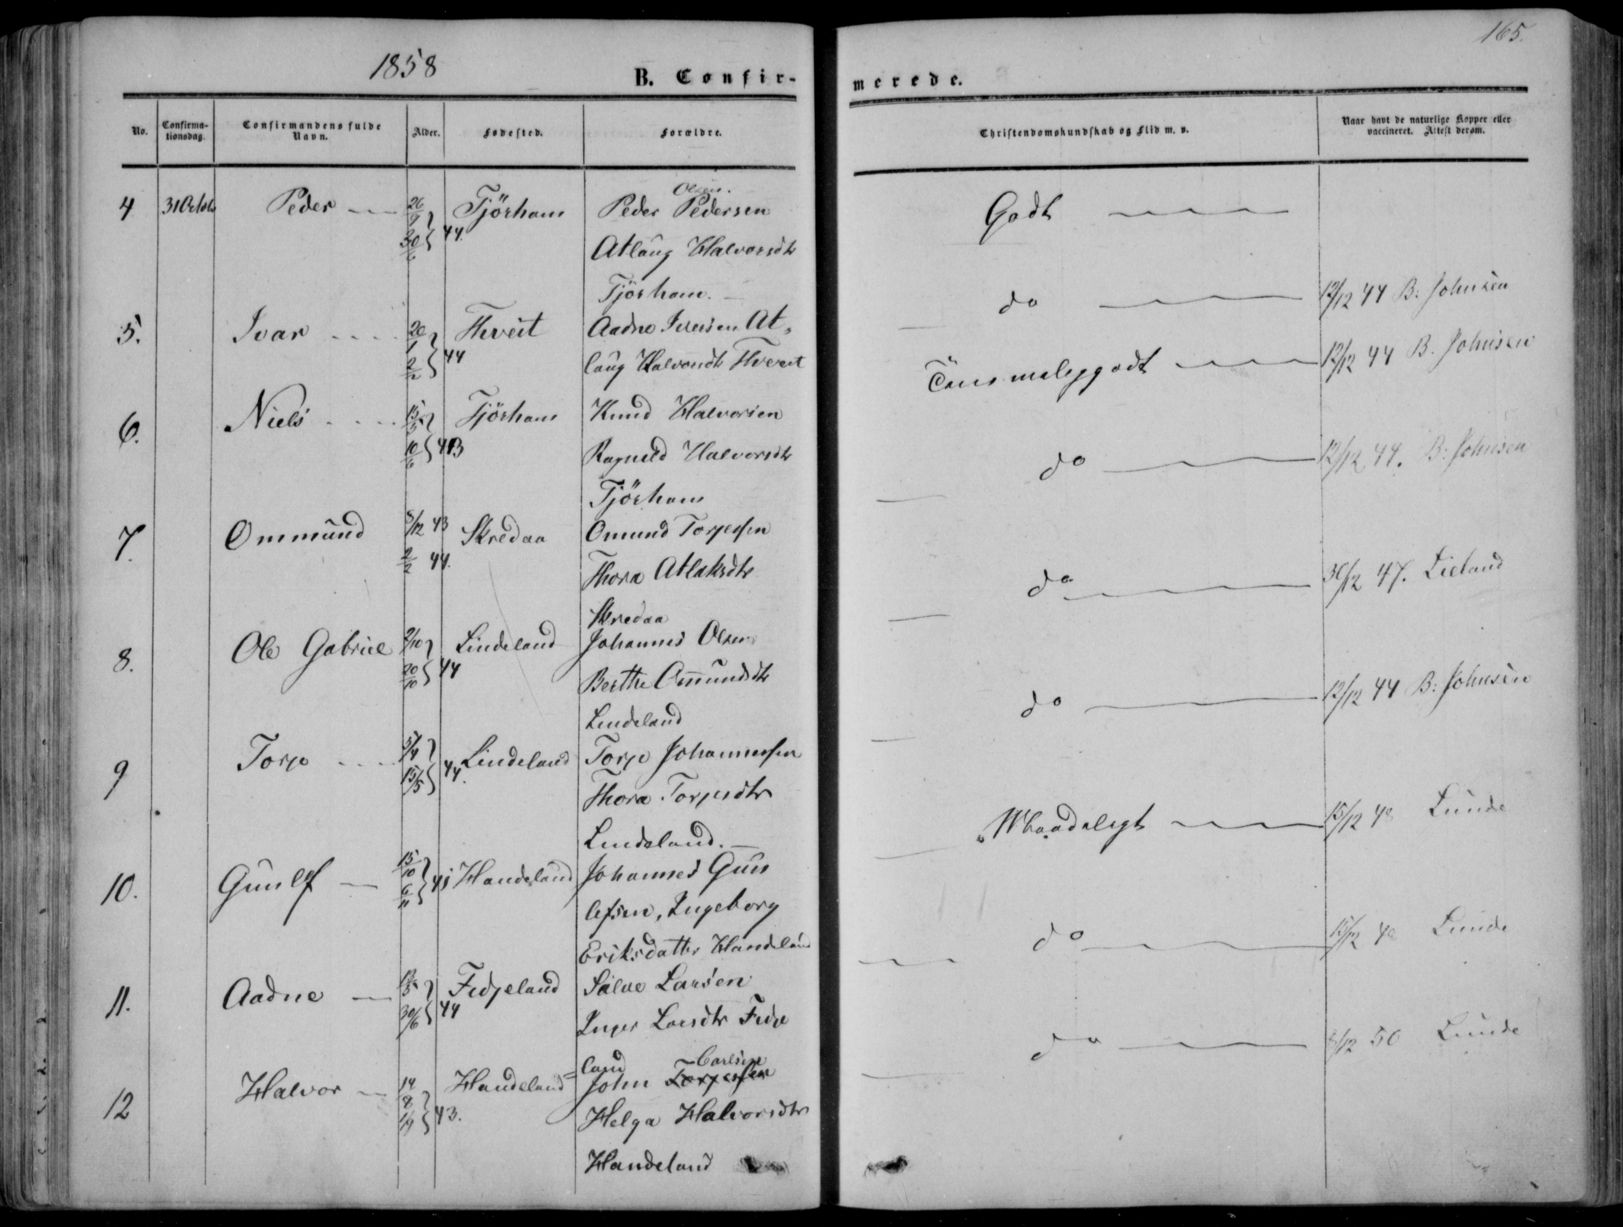 1858
165.
B. Confir-
merede.
No.
Confirma-
tionsdag.
Confirmandens fulde
Navn.
Alder.
Fødested.
Forældre.
Christendomskundskab og Flid m. v.
Naar havt de naturlige Kopper eller
vaccineret. Attest derom.
4 31 Octob Peder 26/9 30/6 44. Tjörhom Peder Olsen. Pedersen
Atlaug Halvorsdtr
Tjörhom.
Godt
5. Ivar 20/1 2/2 44 Hveit Aadne Iversen At-
laug Halvorsdtr Hveit
do 12/12 44 B. Johnsen
6. Niels 15/5 10/6 43 Tjörhom Knud Halvorsen
Ragnild Halvorsdtr
Tjörhom
12/12 44 B. Johnsen
7. Ommund 8/12 43 2/2 44. Skredaa Omund Torjessen
Thora Atlaksdtr
Skredaa
do 12/12 44. B. Johnsen
8. Ole Gabriel 2/10 20/10 44 Lindeland Johannes Olsen
Berthe Omundsdtr
Lindeland
do 30/12 47. Lieland
9 Torje 5/4 15/5 44. Lindeland Torje Johannessen
Thora Torjesdtr
Lindeland.
do 12/12 44 B: Johnsen
10. Gunlef 15/10 6/11 Handeland Johannes Gun
lefsen, Ingeborg
Eriksdatter Handeland
Maadeligt 15/12 Lunde
11. Aadne 30/6 44 Fidjeland Salve Larsen
Inger Larsdtr Fidje
land
do 15/12 Lunde
12 Halvor 14/8 1/9 43. Handeland John Torjessen Carlsen
Helga Halvorsdtr
Handeland
do 8/12 50 Lunde